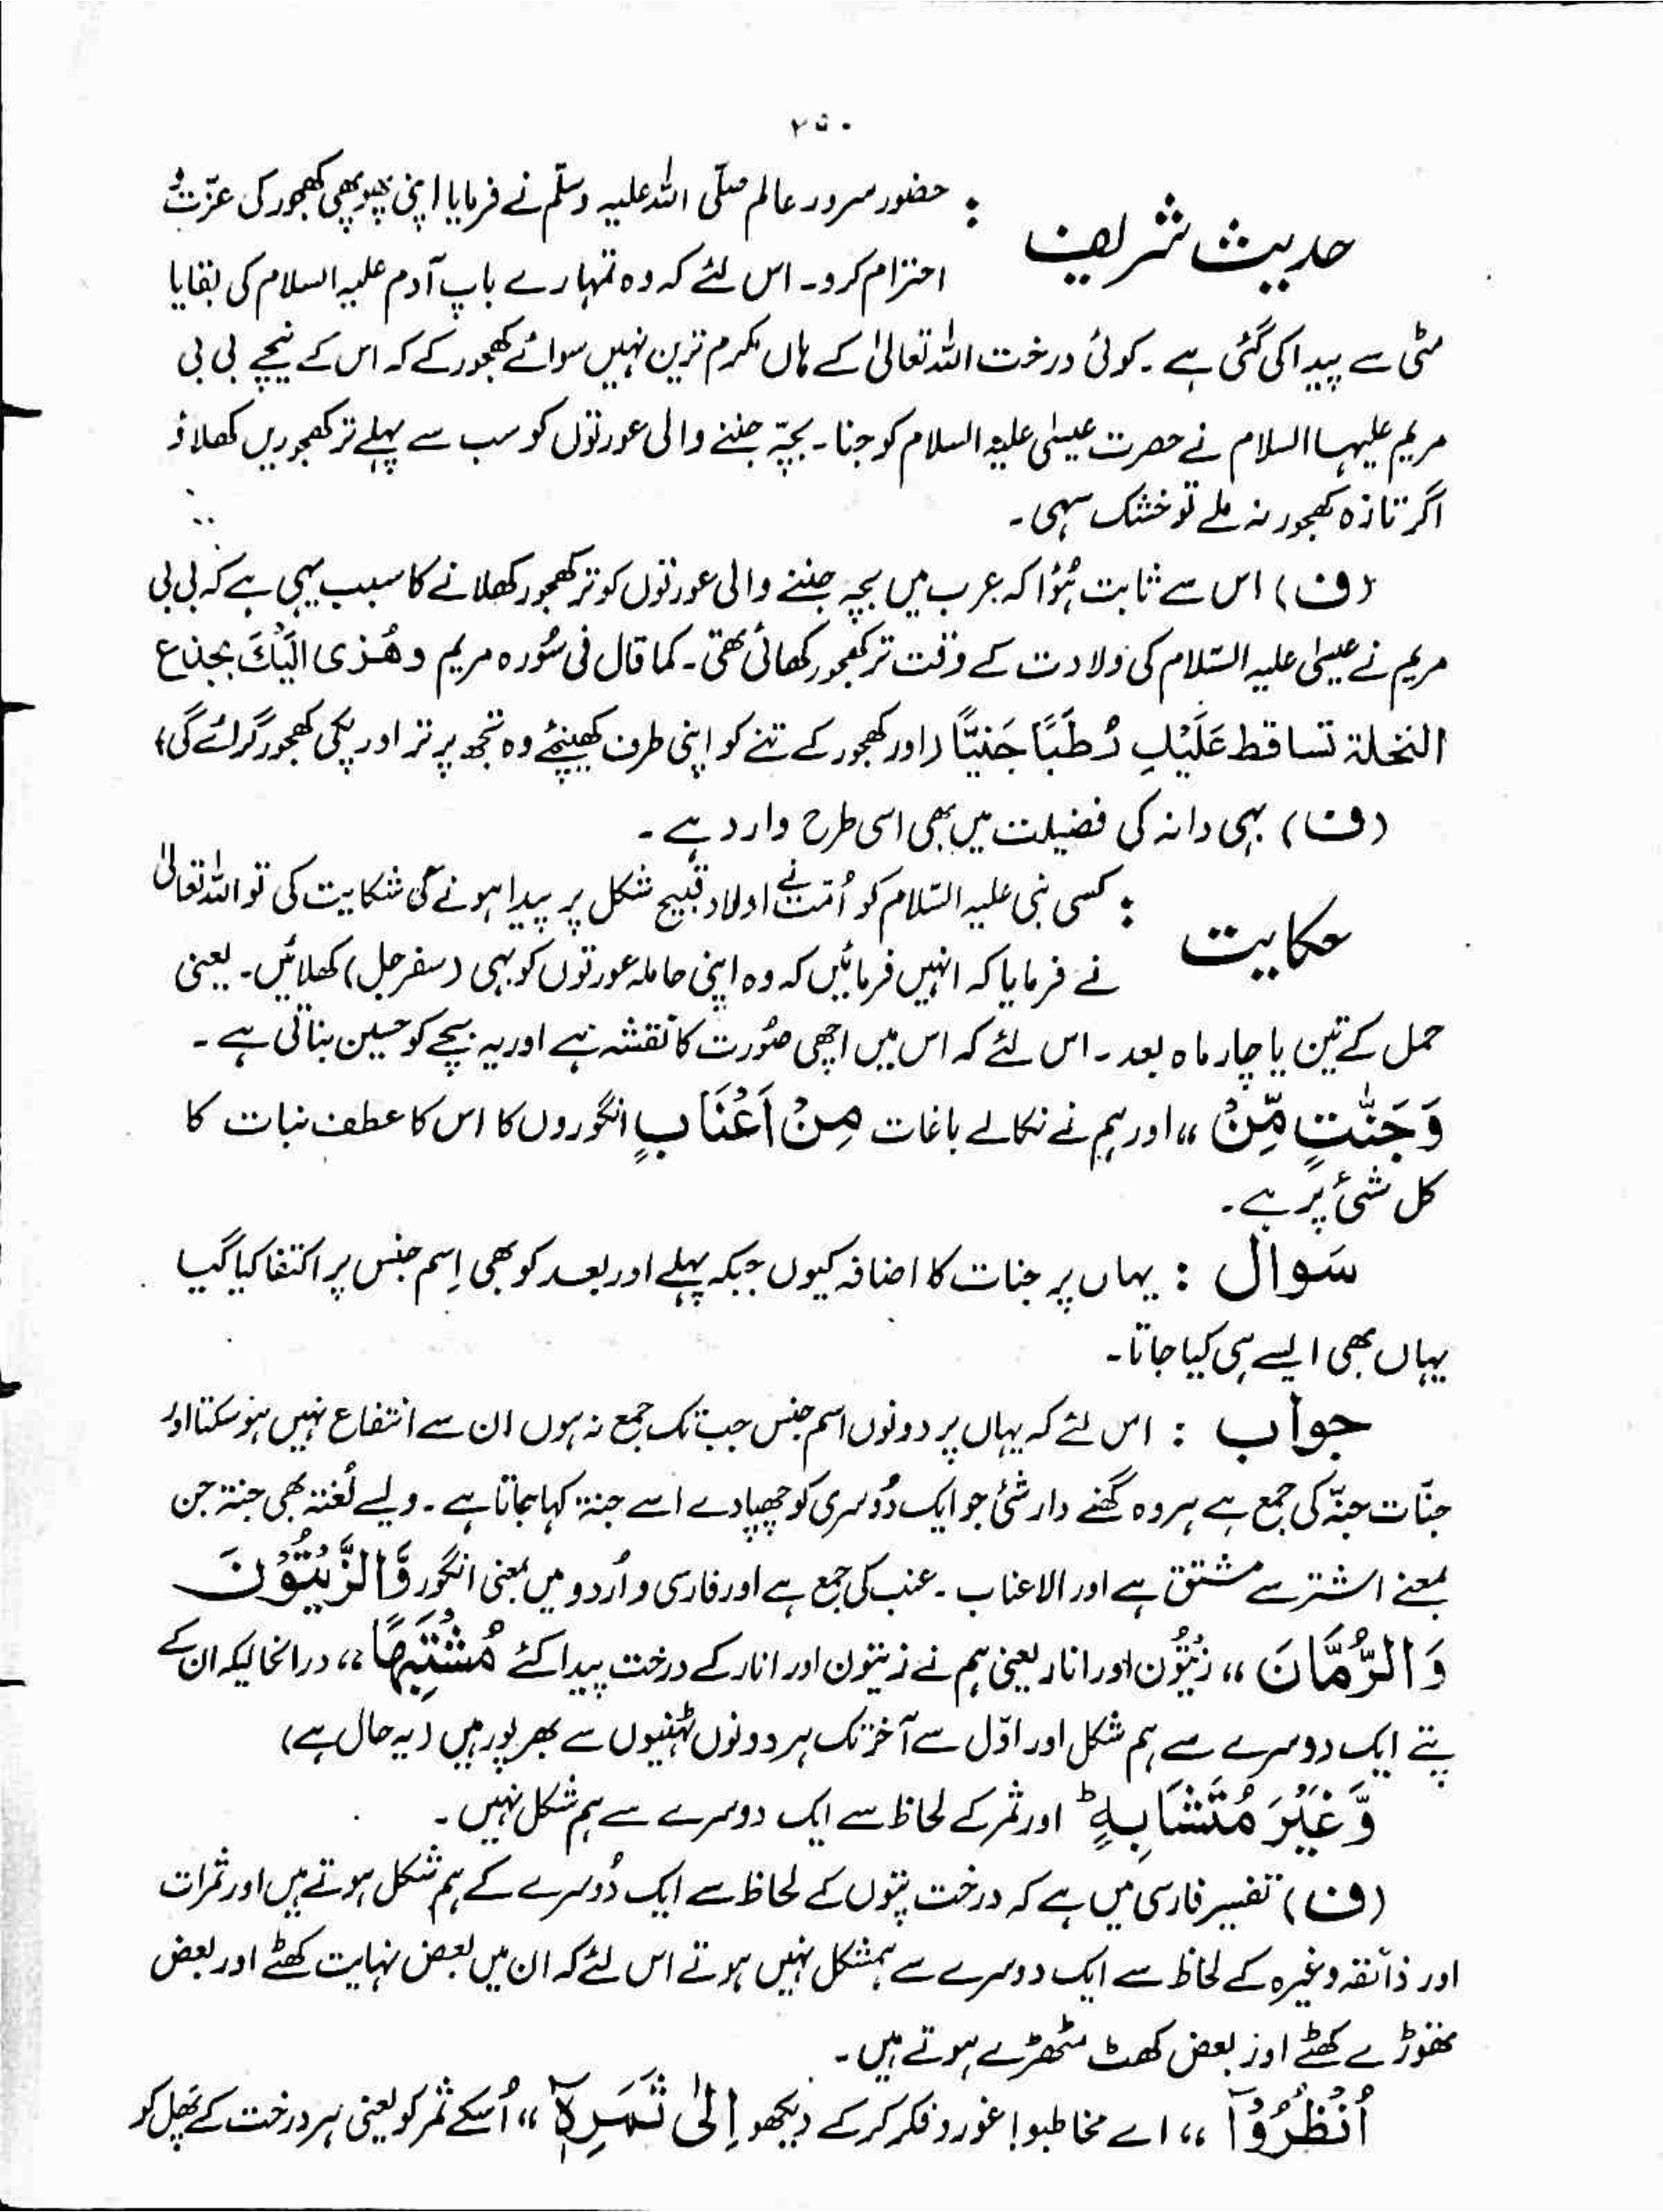 ۲۵۰
حدیث شریف : حضور سرور عالم صلّی اللہ علیہ وسلّم نے فرمایا اپنی پھوپھی کھجور کی عزّت و
احترام کرو۔ اس لئے کہ وہ تمہارے باپ آدم علیہ السلام کی بقایا
مٹی سے پیدا کی گئی ہے ۔ کوئی درخت اللہ تعالیٰ کے ہاں مکرم ترین نہیں سوائے کھجور کے کہ اس کے نیچے بی بی
مریم علیہا السلام نے حضرت عیسٰی علیہ السلام کو جنا۔ بچّہ جننے والی عورتوں کو سب سے پہلے تر کھجوریں کھلاؤ
اگر تازہ کھجور نہ ملے تو خشک سہی ۔
(ف) اس سے ثابت ہُوا کہ عرب میں بچہ جننے والی عورتوں کو تر کھجور کھلانے کا سبب یہی ہے کہ بی بی
مریم نے عیسٰی علیہ السّلام کی ولادت کے وقت تر کھجور کھائی تھی۔ کما قال فی سُورہ مریم وھُزی الَیْکَ بجذع
النخلۃ تساقط عَلَیْكِ رُطَبًا جَنیًّا (اور کھجور کے تنے کو اپنی طرف کھینچئے وہ تجھ پر تر اور پکی کھجور گرائے گی)
(ف) بہی دانہ کی فضیلت میں بھی اسی طرح وارد ہے ۔
حکایت : کسی نبی علیہ السّلام کو اُمّت نے اولاد قبیح شکل پر پیدا ہونے کی شکایت کی تو اللہ تعالیٰ
نے فرمایا کہ انہیں فرمائیں کہ وہ اپنی حاملہ عورتوں کو بہی (سفرجل) کھلائیں۔ یعنی
حمل کے تین یا چار ماہ بعد ۔ اس لئے کہ اس میں اچھی صُورت کا نقشہ ہے اور یہ بچے کو حسین بناتی ہے ۔
وَجَنّٰتٍ مِّنْ ،، اور ہم نے نکالے باغات مِنْ اَعْنَابٍ انگوروں کا اس کا عطف نبات کا
کل شئ پر ہے ۔
سَوال : یہاں پر جنات کا اضافہ کیوں جبکہ پہلے اور بعد کو بھی اِسم جنس پر اکتفا کیا گیا
یہاں بھی ایسے ہی کیا جاتا ۔
جواب : اس لئے کہ یہاں پر دونوں اسم جنس جب تک جمع نہ ہوں ان سے انتفاع نہیں ہو سکتا اور
جنّات جنّہ کی جمع ہے ہر وہ گھنے دار شئ جو ایک دُوسری کو چھپادے اسے جنۃ کہا جاتا ہے ۔ ویسے لُغتہ بھی جنۃ جن
بمعنے استتر سے مشتق ہے اور الاعناب ۔ عنب کی جمع ہے اور فارسی و اُردو میں بمعنی انگور وَّالزَّیْتُوْنَ
وَالرُّمَّانَ ،، زیتُون اور انار یعنی ہم نے زیتون اور انار کے درخت پیدا کئے مُشْتَبِهًا ،، درانحالیکہ ان کے
پتے ایک دوسرے سے ہم شکل اور اوّل سے آخر تک ہر دونوں ٹہنیوں سے بھرپور ہیں (یہ حال ہے)
وَّغَیْرَ مُتَشَابِهٍ ؕ اور ثمر کے لحاظ سے ایک دوسرے سے ہم شکل نہیں ۔
(ف) تفسیر فارسی میں ہے کہ درخت پتّوں کے لحاظ سے ایک دُوسرے کے ہم شکل ہوتے ہیں اور ثمرات
اور ذائقہ وغیرہ کے لحاظ سے ایک دوسرے سے ہمشکل نہیں ہوتے اس لئے کہ ان میں بعض نہایت کھٹے اور بعض
تھوڑے کھٹے اور بعض کھٹ مٹھڑے ہوتے ہیں ۔
اُنْظُرُوْۤا ،، اے مخاطبو! غور و فکر کر کے دیکھو اِلیٰ ثَمَرِهٖۤ ،، اُسکے ثمر کو یعنی ہر درخت کے پھل کو